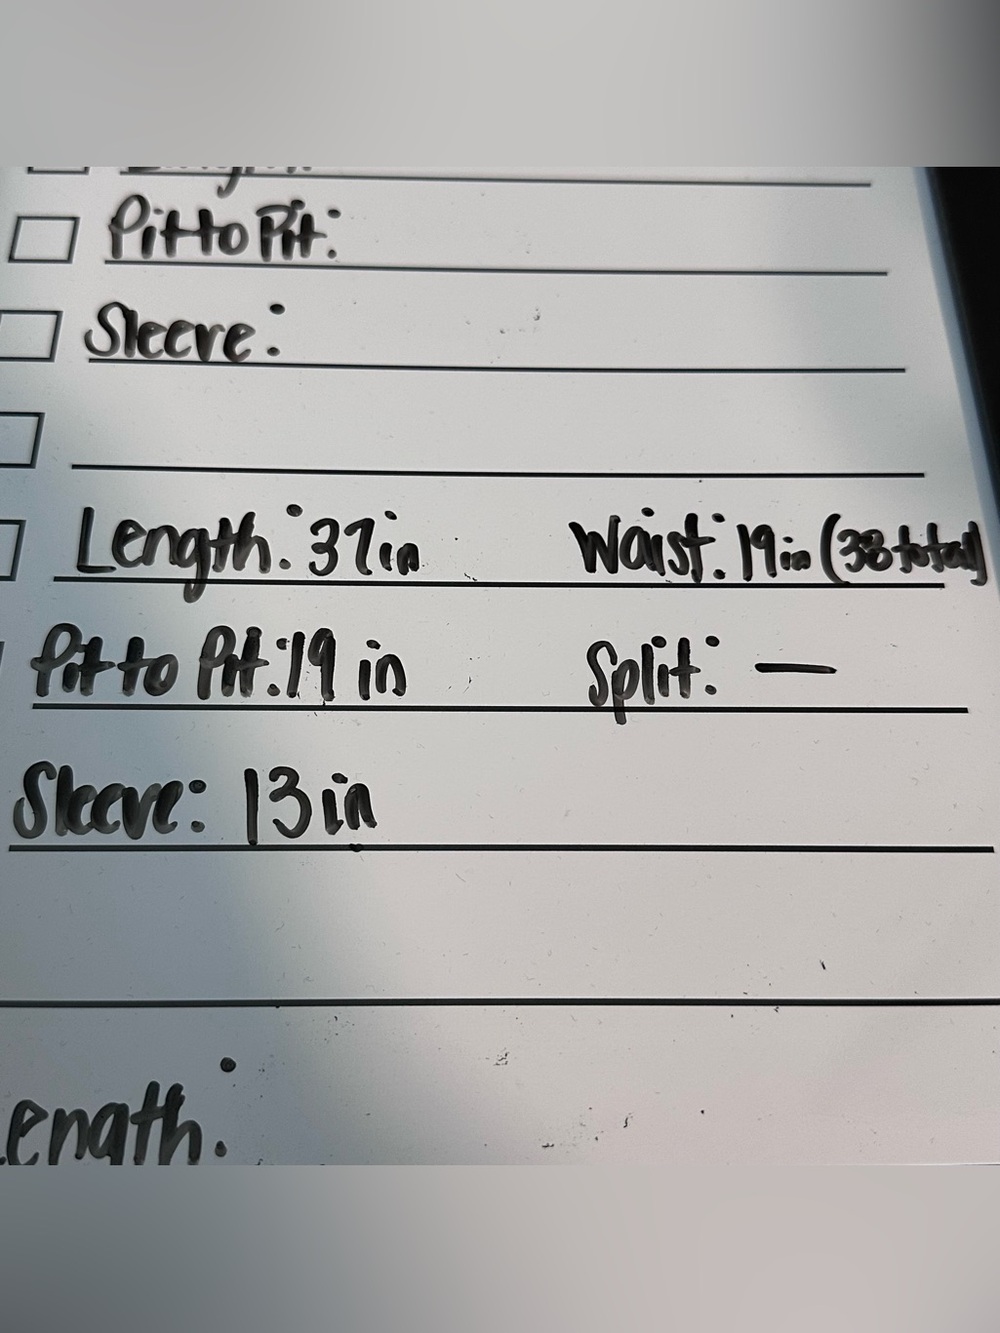 Pit to Pit:
Sleeve:
Length: 37in Waist: 19in (38 total)
Pit to Pit: 19 in Split: —
Sleeve: 13 in
ength: